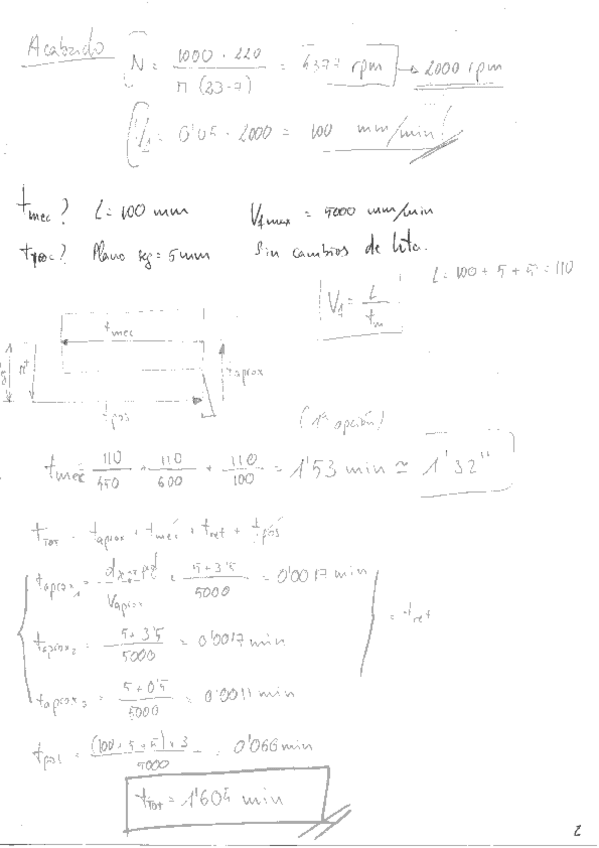 Acabado N = 1000 · 220 / π (23-7) = 4377 rpm → 2000 rpm
V₁ = 0'05 · 2000 = 100 mm/min
t mec? L = 100 mm Vfmax = 5000 mm/min
Plano kg = 5mm Sin cambios de hta.
L = 100 + 5 + 5 = 110
V₁ = L / tm
t mec
t aprox
t pos
(1ª opción)
t mec = 110/450 + 110/600 + 110/100 = 1'53 min ≃ 1'32"
t TOT = t aprox + t mec + t ret + t pos
t aprox₁ = / V aprox = 5+3'5 / 5000 = 0'0017 min
= t ret
t aprox₂ = 5+3'5 / 5000 = 0'0017 min
t aprox₃ = 5+0'5 / 5000 = 0'0011 min
t pos = (100+5+5)×3 / 5000 = 0'066 min
t TOT = 1'604 min
2